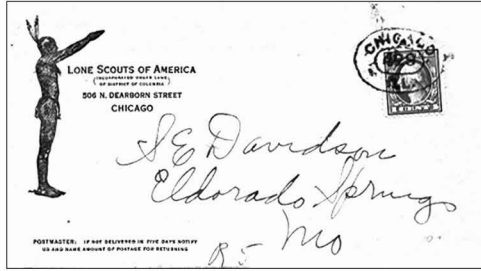 LONE SCOUTS OF AMERICA
(INCORPORATED UNDER LAWS
OF DISTRICT OF COLUMBIA)
506 N. DEARBORN STREET
CHICAGO
CHICAGO
ILL.
S E Davidson
Eldorado Springs
Mo
R 5
POSTMASTER: IF NOT DELIVERED IN FIVE DAYS NOTIFY
US AND NAME AMOUNT OF POSTAGE FOR RETURNING